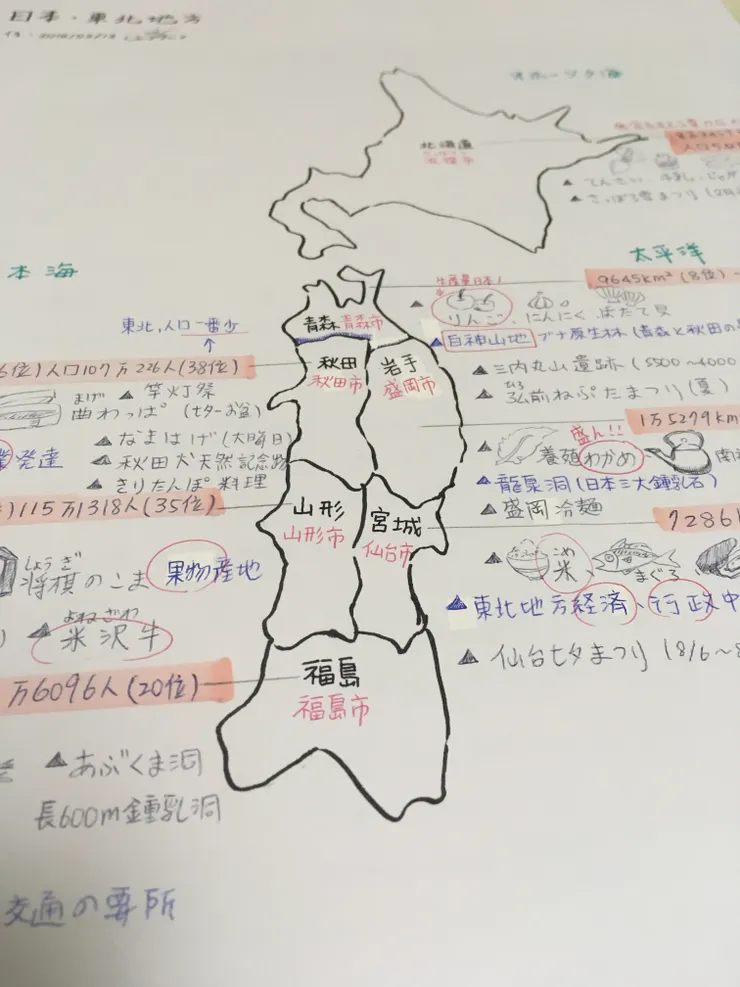 日本・東北地方
オホーツク海
北海道
人口5
▲てんさい 牛乳 じゃが
▲さっぽろ雪まつり(2月
太平洋
本海
9645km²(8位)
生産量日本1
りんご、にんにく ほたて貝
青森 青森市
東北,人口一番少
▲白神山地 ブナ原生林(青森と秋田の
6位)人口107万226人(38位)
秋田
秋田市
岩手
盛岡市
▲三内丸山遺跡(5500~4000
▲竿灯祭
ひろ
▲弘前ねぷたまつり(夏)
まげ
曲わっぱ(七夕~お盆)
1万5279km
▲なまはげ(大晦日)
盛ん!!
▲養殖わかめ
発達
▲秋田犬天然記念物
▲龍泉洞(日本三大鍾乳石)
▲きりたんぽ料理
▲盛岡冷麺
)115万1318人(35位)
山形
山形市
宮城
仙台市
7286
しょうぎ
将棋のこま
果物産地
こめ
米、
まぐろ
よねざわ
▲米沢牛
▲東北地方経済、行政中
▲仙台七夕まつり(8/6~8
万6096人(20位)
福島
福島市
▲あぶくま洞
長600m鍾乳洞
交通の要所